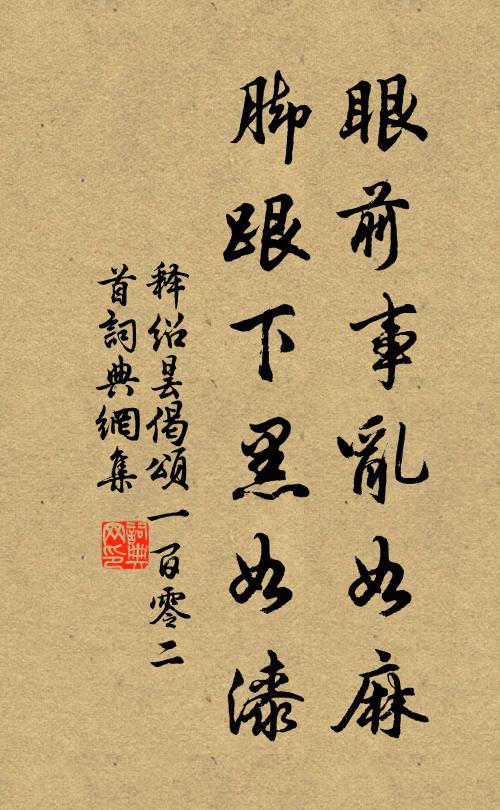 眼前事亂如麻
脚跟下黑如漆
释紹曇偈頌一百零二
首詞典網集
詞典
网印